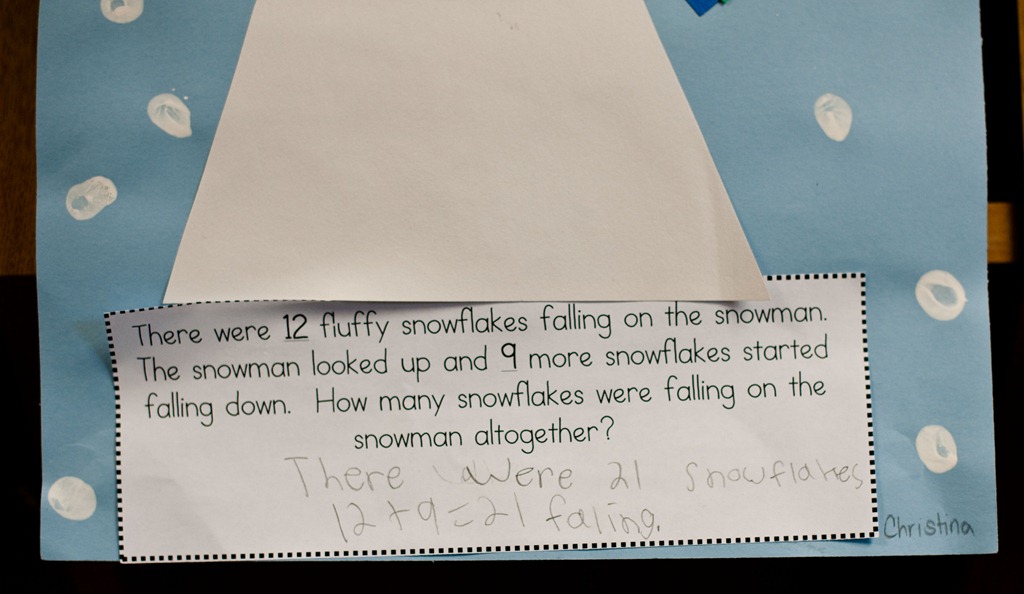 There were 12 fluffy snowflakes falling on the snowman.
The snowman looked up and 9 more snowflakes started
falling down. How many snowflakes were falling on the
snowman altogether?
There were 21 snowflakes
12+9=21 faling.
Christina